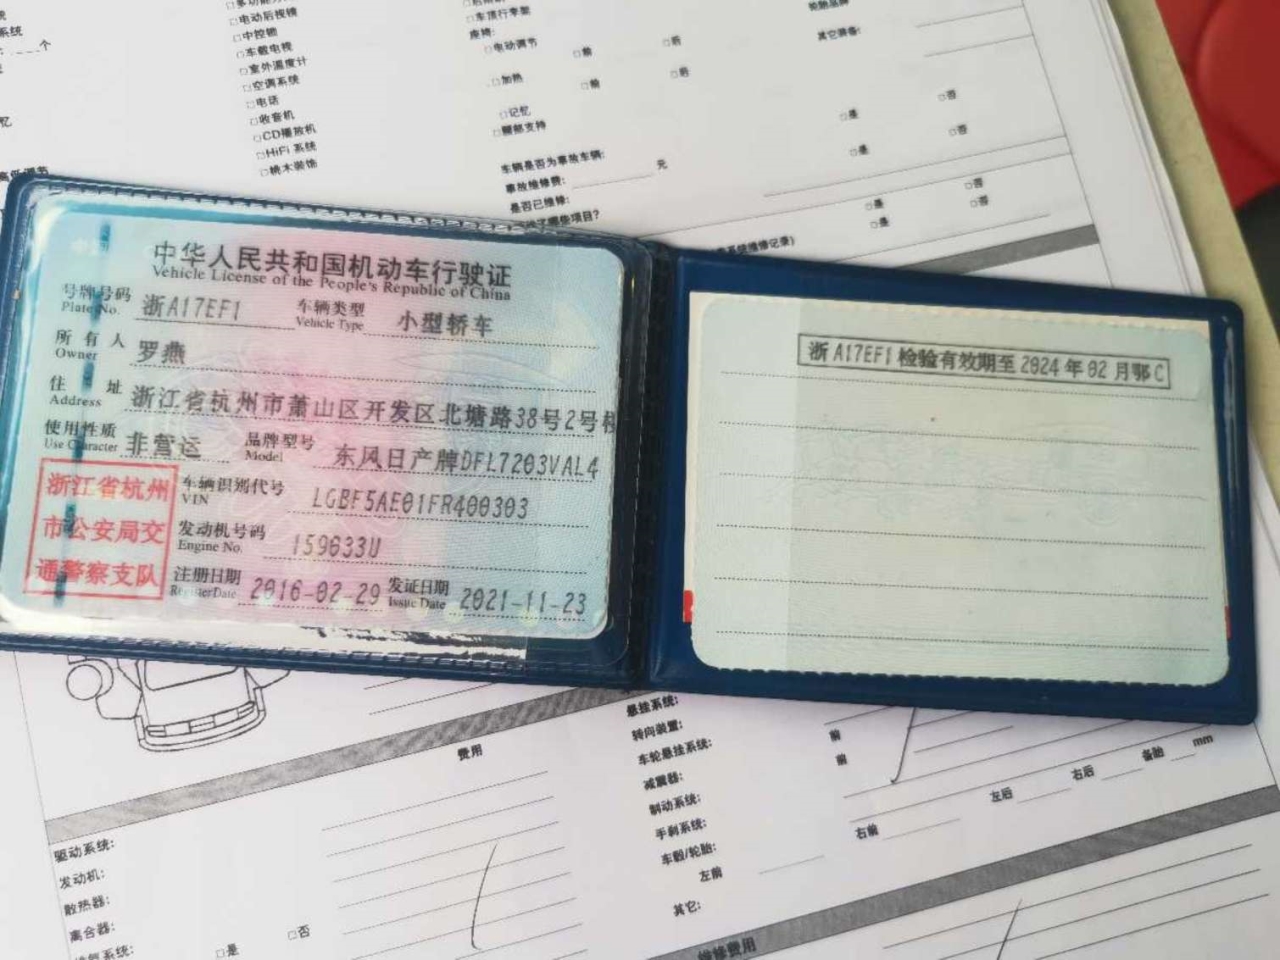 系统
个
忆
□电动后视镜
□中控锁
□车载电视
□室外温度计
□空调系统
□电话
□收音机
□CD播放机
□HiFi 系统
□桃木装饰
□车顶行李架
座椅:
□电动调节 □前 □后
□加热 □前 □后
□记忆
□腰部支持
其它装备:
□是 □否
□是 □否
车辆是否为事故车辆:
事故维修费: 元
是否已维修:
□是 □否
□是 □否
中华人民共和国机动车行驶证
Vehicle License of the People's Republic of China
号牌号码 浙A17EF1 车辆类型 小型轿车
Plate No. Vehicle Type
所有人 罗燕
Owner
住址 浙江省杭州市萧山区开发区北塘路38号2号
Address
使用性质 非营运 品牌型号 东风日产牌DFL7203VAL4
Use Character Model
浙江省杭州
市公安局交
通警察支队
车辆识别代号 LGBF5AE01FR400303
VIN
发动机号码 159633U
Engine No.
注册日期 2016-02-29 发证日期 2021-11-23
Register Date Issue Date
浙A17EF1检验有效期至2024年02月鄂C
费用
驱动系统:
发动机:
散热器:
离合器:
□是 □否
悬挂系统:
转向装置:
车轮悬挂系统: 前
减震器: 前
制动系统:
手刹系统:
车毂/轮胎:
左前 右前 左后 右后 备胎 mm
其它:
维修费用